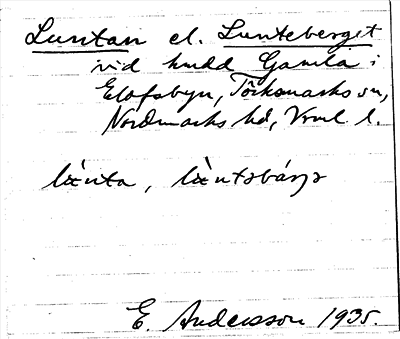 Luntan el. Lunteberget
vid hmdd Gamla i
Elofsbyn, Töcksmarks sn,
Nordmarks hd, Vrml l.
lὰnta, lὰntəbárjə
E. Andersson 1935.